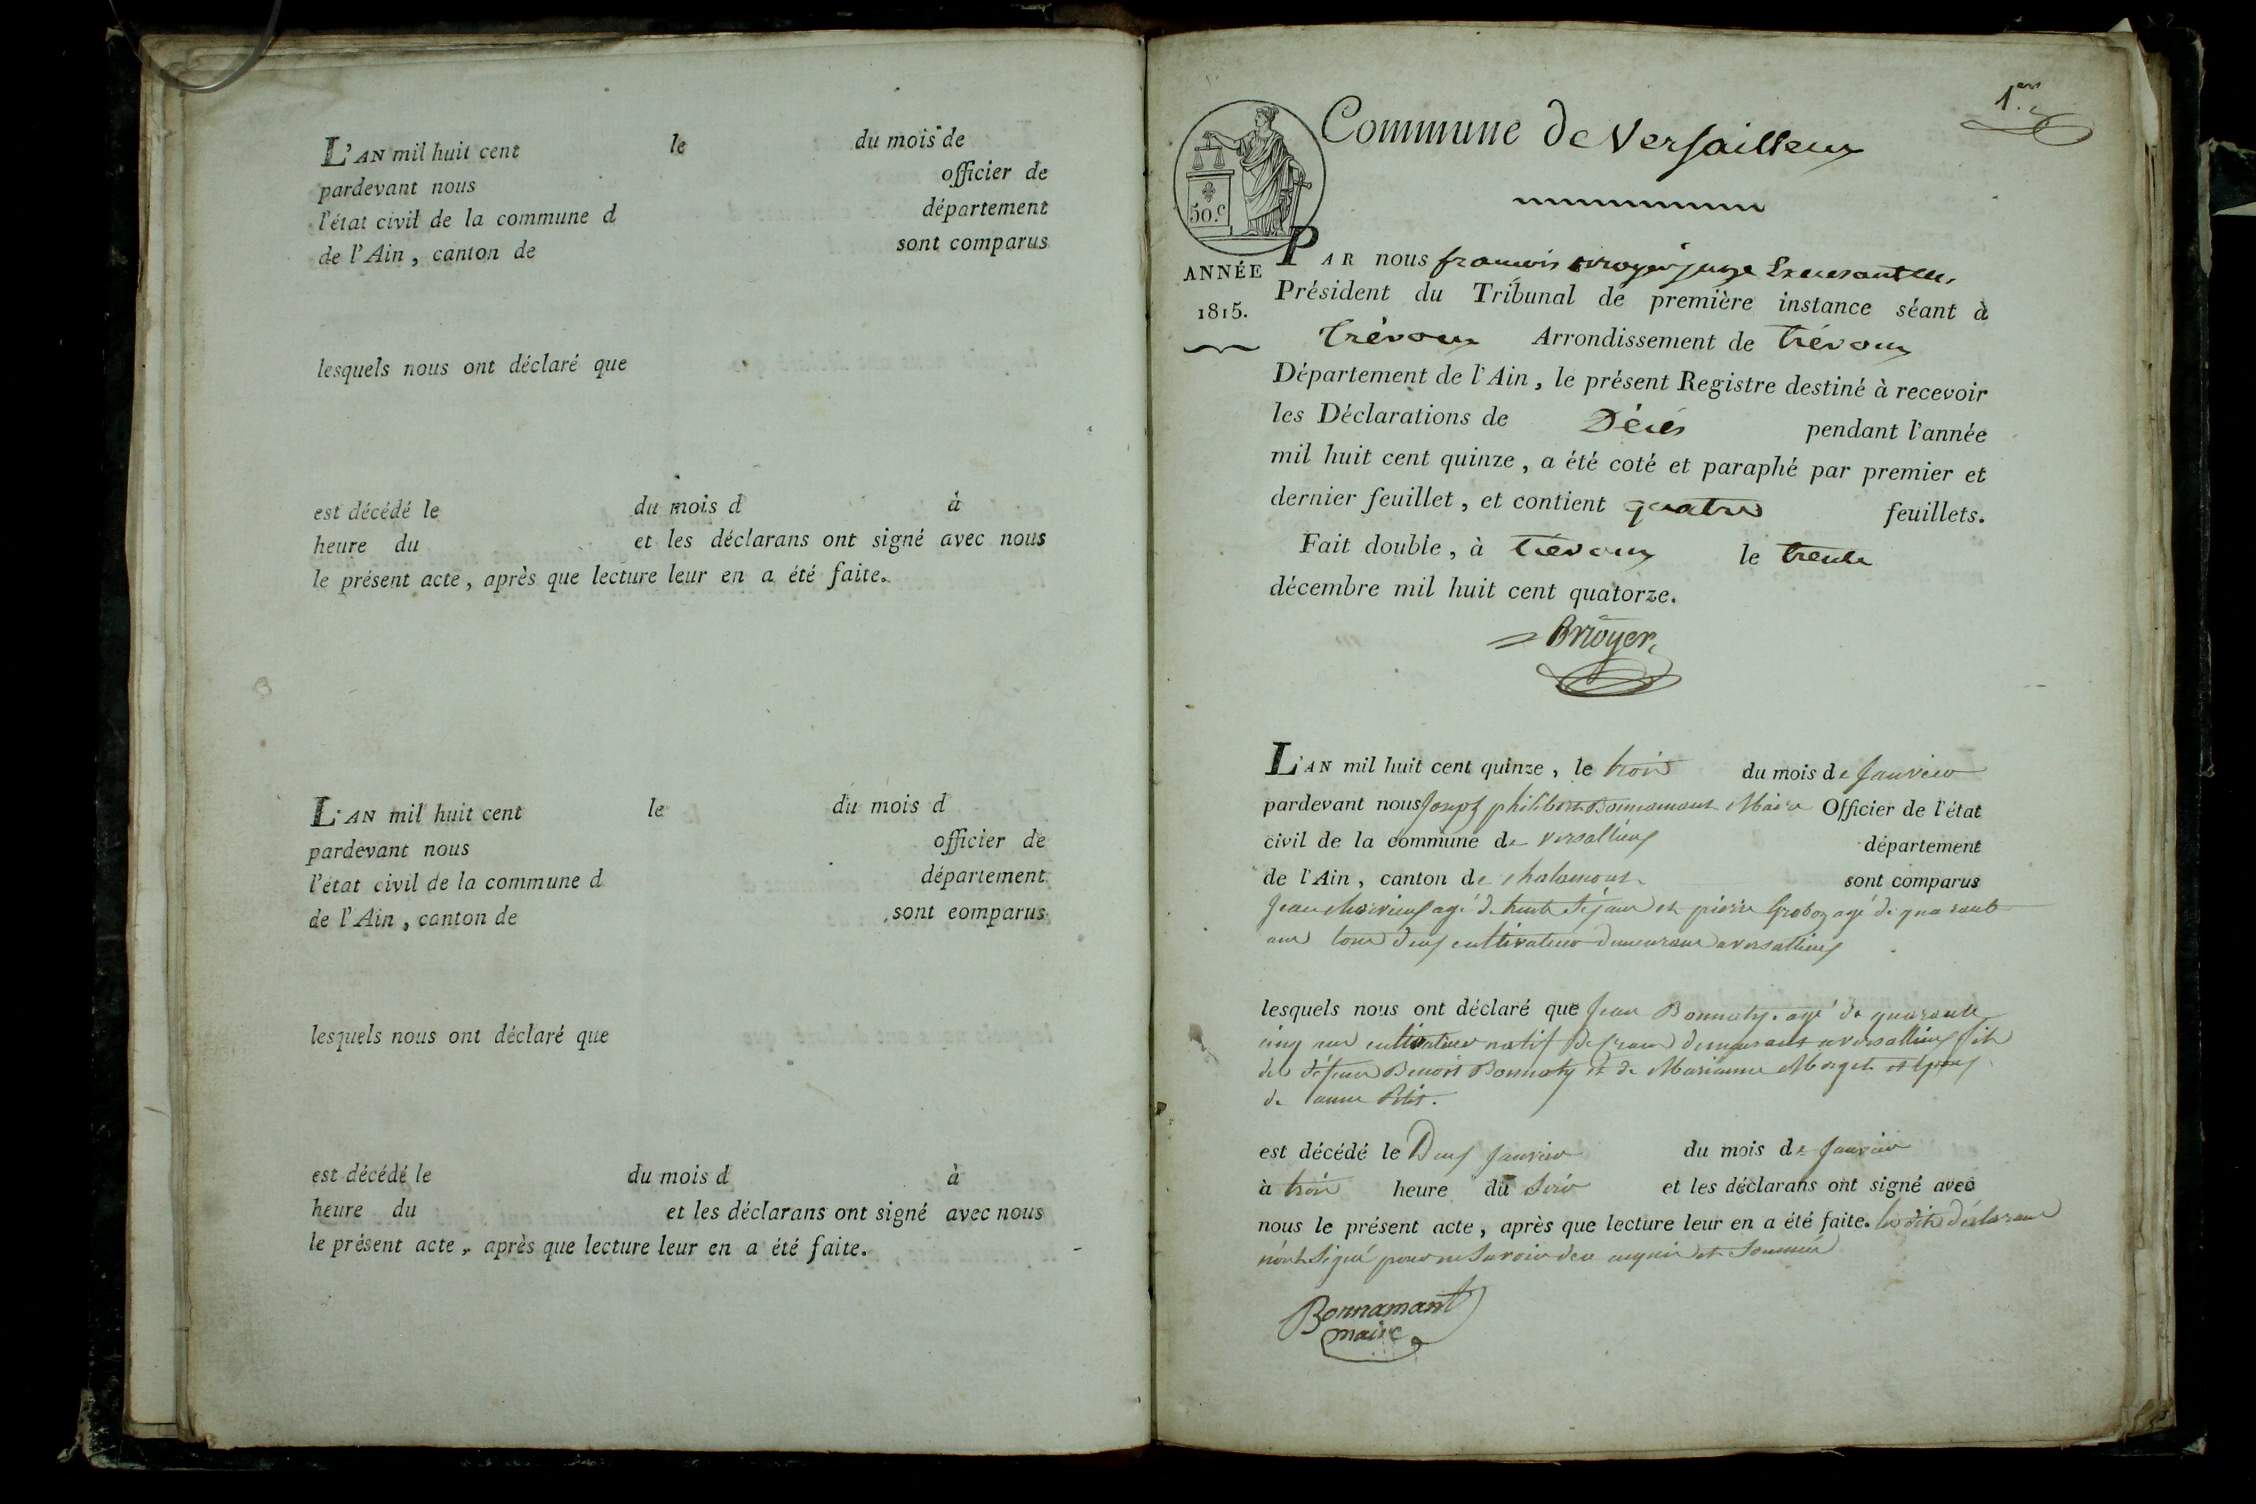 L'AN mil huit cent le du mois de
pardevant nous officier de
l'état civil de la commune d département
de l'Ain, canton de sont comparus
lesquels nous ont déclaré que
est décédé le du mois d à
heure du et les déclarans ont signé avec nous
le présent acte, après que lecture leur en a été faite.
L'AN mil huit cent le du mois d
pardevant nous officier de
l'état civil de la commune d département
de l'Ain, canton de sont comparus
lesquels nous ont déclaré que
est décédé le du mois d à
heure du et les déclarans ont signé avec nous
le présent acte, après que lecture leur en a été faite.
1.er
Commune de Versailleux
50.c
ANNÉE
1815.
PAR nous françois juge
Président du Tribunal de première instance séant à
Trévoux Arrondissement de Trévoux
Département de l'Ain, le présent Registre destiné à recevoir
les Déclarations de Décès pendant l'année
mil huit cent quinze, a été coté et paraphé par premier et
dernier feuillet, et contient quatre feuillets.
Fait double, à Trévoux le trente
décembre mil huit cent quatorze.
L'AN mil huit cent quinze, le trois du mois de Janvier
pardevant nous Joseph philibert Bonnamant Maire Officier de l'état
civil de la commune de versallieux département
de l'Ain, canton de chalamont sont comparus
Jean agé de trente et pierre Groboz agé de quarante
ans tous deux cultivateur demeurant a versallieux
lesquels nous ont déclaré que Jean Bonnaty agé de quarante
cinq ans cultivateur natif de demeurant a versallieux fils
de défunt Benoit Bonnaty et de Marianne et Epoux
de anne Petit.
est décédé le Deux Janvier du mois de Janvier
à trois heure du soir et les déclarans ont signé avec
nous le présent acte, après que lecture leur en a été faite. les dits déclarant
n'ont signé pour ne savoir de ce enquis et sommés
Bonnamant
maire